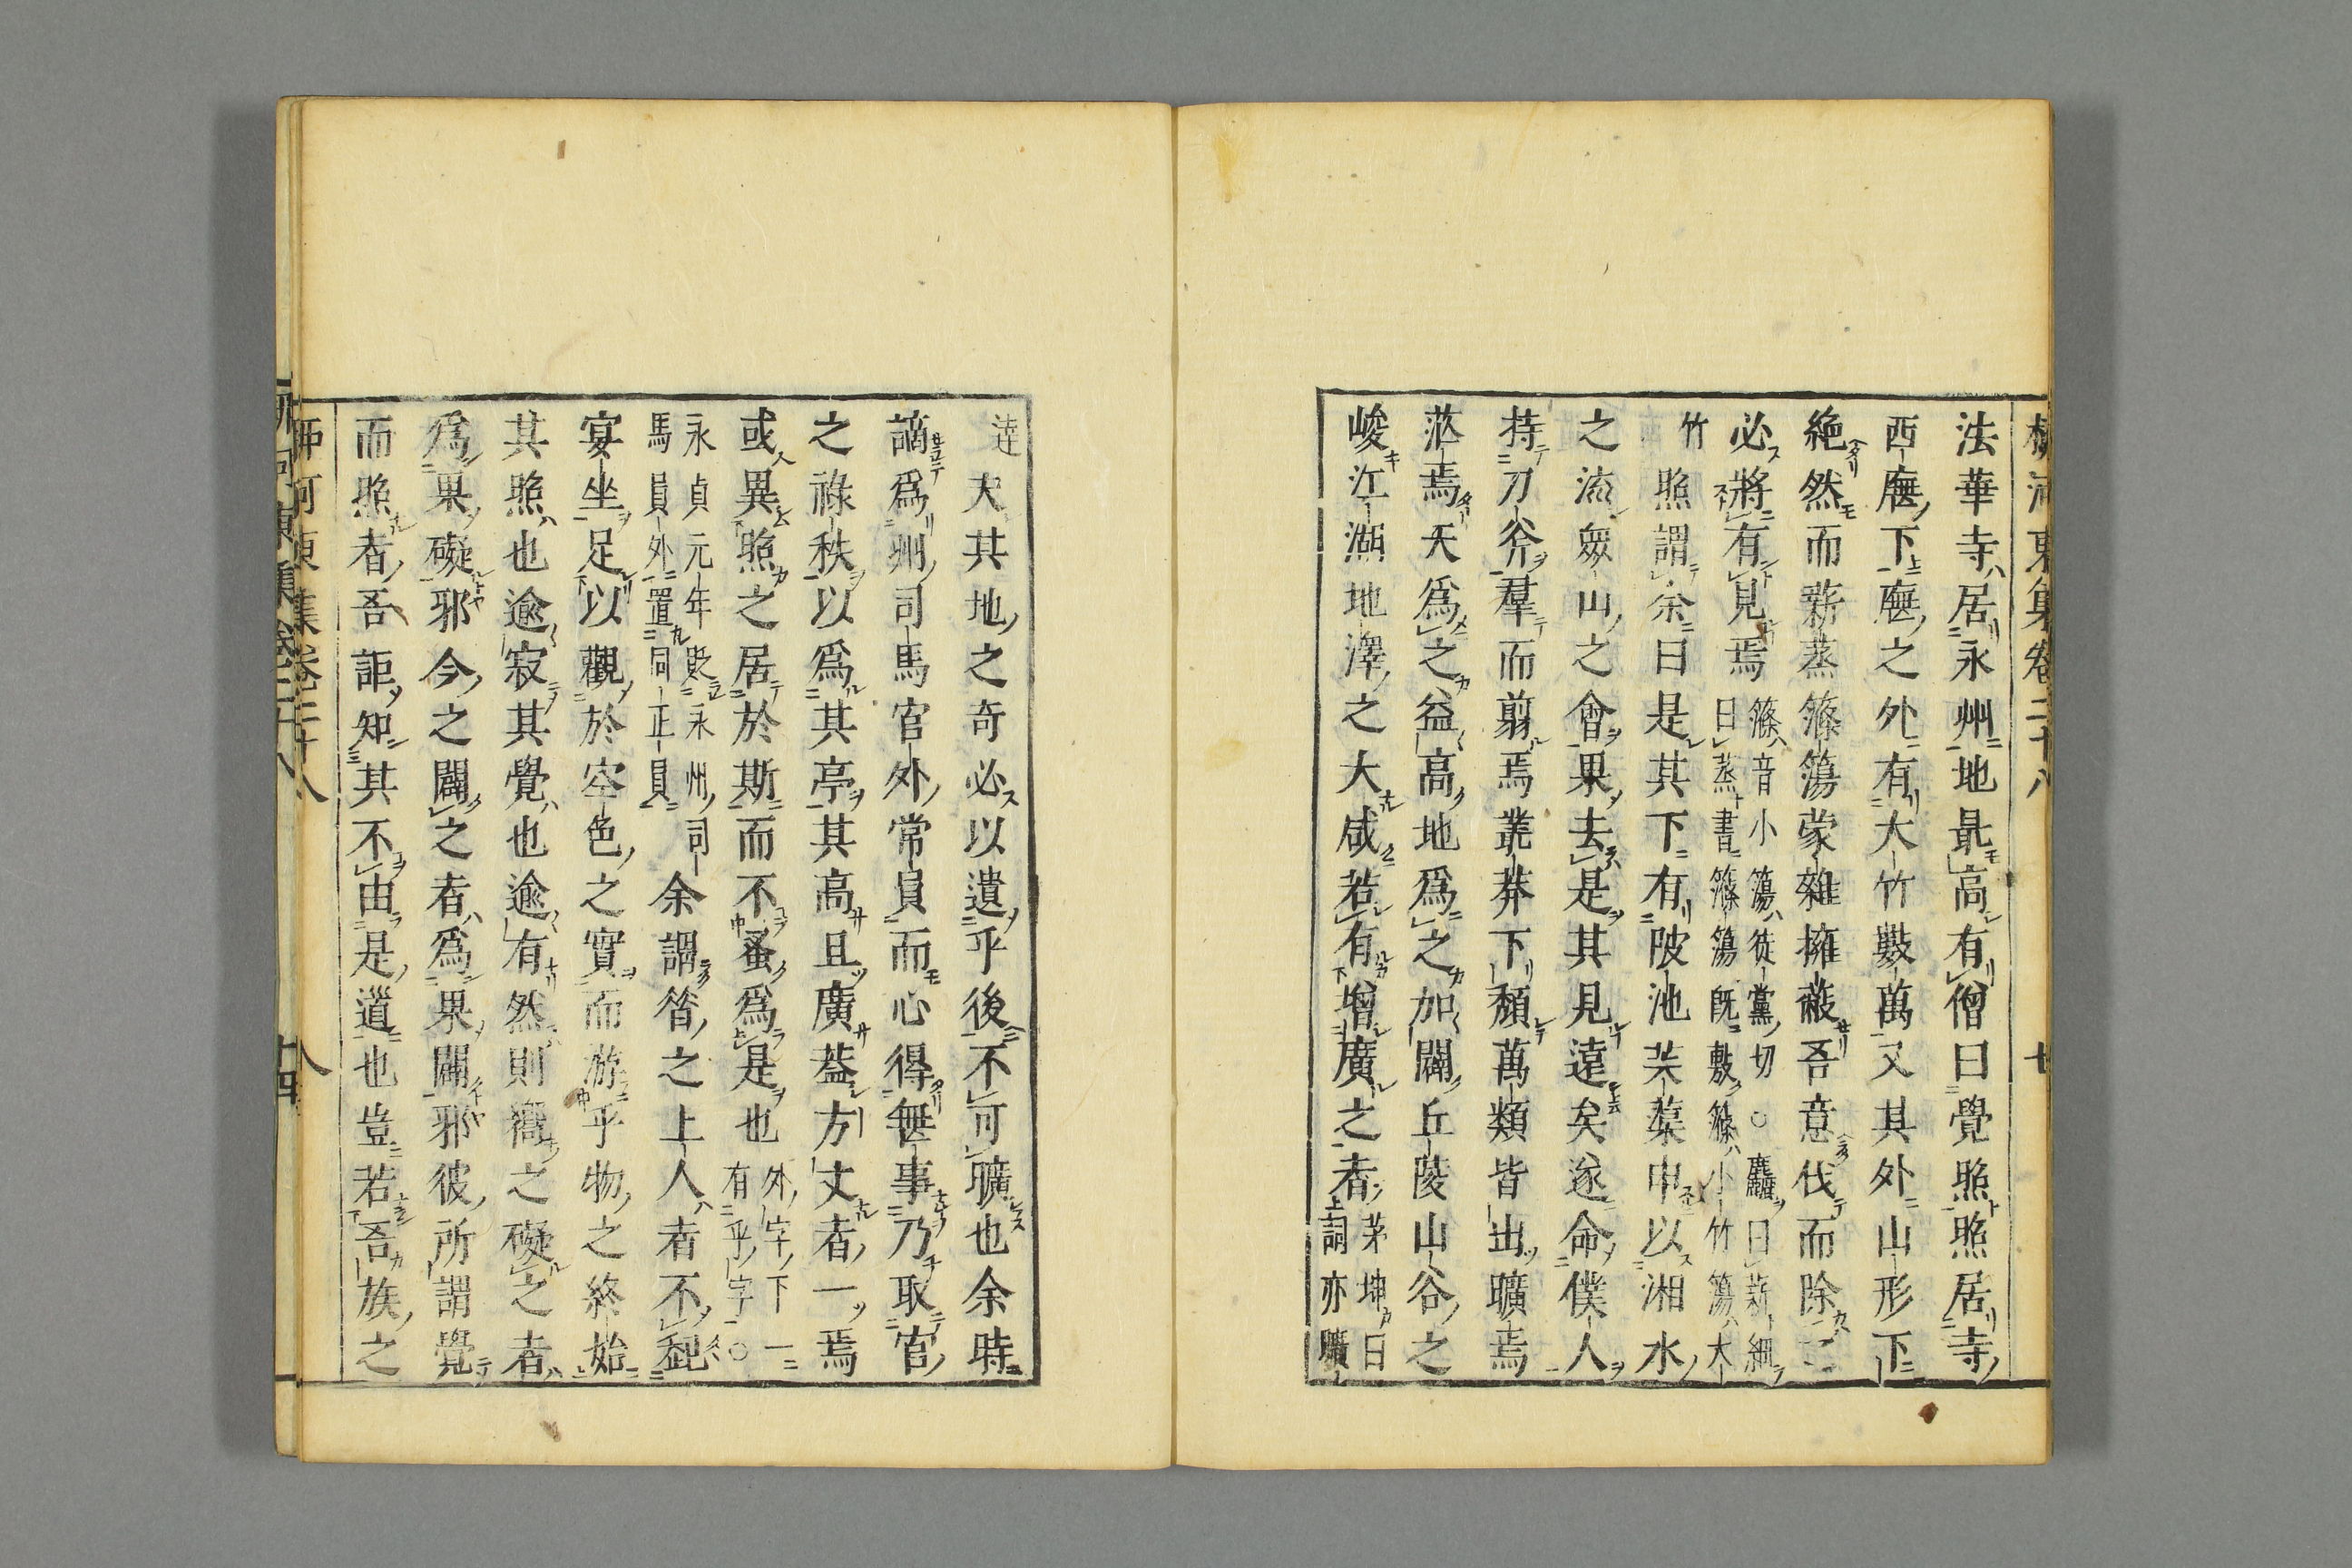 法華寺居永州地最高有僧曰覺照照居寺
西廡下廡之外有大竹數萬又其外山形下
絶然而薪蒸篠簜蒙雜擁蔽吾意伐而除之
必將有見焉
篠音小簜徒黨切○麤曰薪細
曰蒸書篠簜既敷篠小竹簜大
竹
照謂余曰是其下有陂池芙蕖申以湘水
之流衆山之會果去是其見遠矣遂命僕人
持刀斧羣而翦焉叢莽下頹萬類皆出曠焉
茫焉天爲之益高地爲之加闢丘陵山谷之
峻江湖地澤之大咸若有增廣之者
茅坤曰
詞亦曠
逹
夫其地之奇必以遺乎後不可曠也余時
謫爲州司馬官外常員而心得無事乃取官
之祿秩以爲其亭其高且廣葢方丈者一焉
或異照之居於斯而不蚤爲是也
外字下一
有乎字○
永貞元年貶永州司
馬員外置同正員
余謂昝之上人者不起
宴坐足以觀於空色之實而游乎物之終始
其照也逾寂其覺也逾有然則嚮之礙之者
爲果礙邪今之闢之者爲果闢邪彼所謂覺
而照者吾詎知其不由是道也豈若吾族之
柳河東集卷二十八